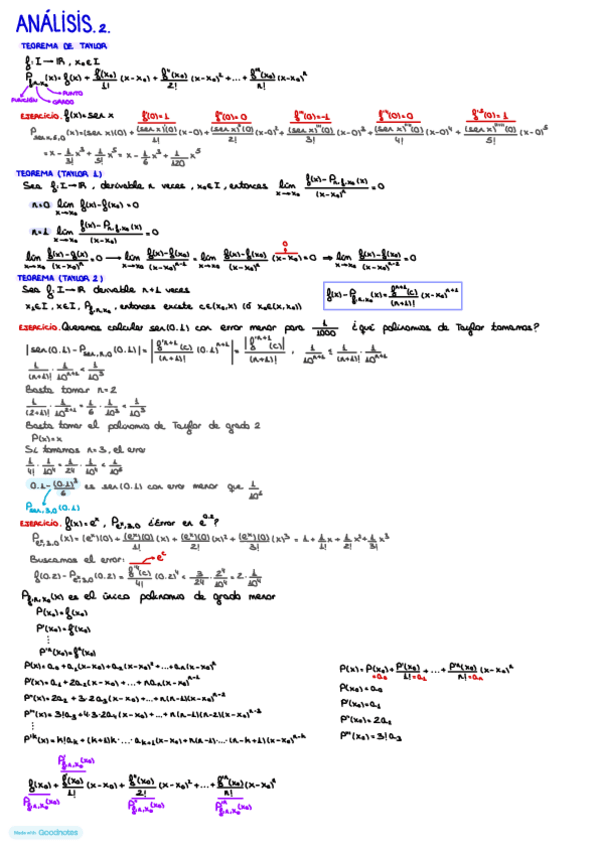 ANÁLISIS.2.
TEOREMA DE TAYLOR
f: I → ℝ, x₀∈I
P_{n,f,x₀}(x) = f(x₀) + f'(x₀)/1! (x-x₀) + f''(x₀)/2! (x-x₀)² + ... + fⁿ(x₀)/n! (x-x₀)ⁿ
PUNTO
FUNCIÓN GRADO
EJERCICIO. f(x) = sen x f(0)=1 f''(0)=0 f'''(0)=-1 f''''(0)=0 f'⁵(0)=1
P_{sen x,5,0}(x) = (sen x)(0) + (sen x)'(0)/1! (x-0) + (sen x)''(0)/2! (x-0)² + (sen x)'''(0)/3! (x-0)³ + (sen x)''''(0)/4! (x-0)⁴ + (sen x)'''''(0)/5! (x-0)⁵
= x - 1/3! x³ + 1/5! x⁵ = x - 1/6 x³ + 1/120 x⁵
TEOREMA (TAYLOR 1)
Sea f: I → ℝ, derivable n veces, x₀∈I, entonces lim x→x₀ f(x)-P_{n,f,x₀}(x)/(x-x₀)ⁿ = 0
n=0 lim x→x₀ f(x)-f(x₀)=0
n=1 lim x→x₀ f(x)-P_{n,f,x₀}(x)/(x-x₀) = 0
lim x→x₀ f(x)-f(x)/(x-x₀)ⁿ = 0 → lim x→x₀ f(x)-f(x₀)/(x-x₀)ⁿ⁻¹ = lim x→x₀ f(x)-f(x₀)/(x-x₀)ⁿ (x-x₀) = 0 ⇒ lim x→x₀ f(x)-f(x₀)/(x-x₀)ⁿ⁻¹ = 0
TEOREMA (TAYLOR 2)
Sea f: I → ℝ derivable n+1 veces
x₀∈I, x∈I, P_{f,n,x₀}, entonces existe c∈(x₀,x) (ó x₀∈(x,x₀)) f(x)-P_{f,n,x₀}(x) = fⁿ⁺¹(c)/(n+1)! (x-x₀)ⁿ⁺¹
EJERCICIO. Queremos calcular sen(0.1) con error menor para 1/1000 ¿qué polinomios de Taylor tomamos?
|sen(0.1) - P_{sen,n,0}(0.1)| = |f'ⁿ⁺¹(c)/(n+1)! (0.1)ⁿ⁺¹| = |f'ⁿ⁺¹(c)|/(n+1)! · 1/10ⁿ⁺¹ ≤ 1/(n+1)! · 1/10ⁿ⁺¹
1/(n+1)! · 1/10ⁿ⁺¹ < 1/10³
Basta tomar n=2
1/(2+1)! · 1/10²⁺¹ = 1/6 · 1/10³ < 1/10³
Basta tomar el polinomio de Taylor de grado 2
P(x)=x
Si tomamos n=3, el error
1/4! · 1/10⁴ = 1/24 · 1/10⁴ < 1/10⁶
0.1 - (0.1)³/6 es sen(0.1) con error menor que 1/10⁶
P_{sen,3,0}(0.1)
EJERCICIO. f(x)=eˣ, P_{eˣ,3,0} ¿Error en e^0.2?
P_{eˣ,3,0}(x) = (eˣ)(0) + (eˣ)'(0)/1! (x) + (eˣ)''(0)/2! (x)² + (eˣ)'''(0)/3! (x)³ = 1 + 1/1! x + 1/2! x² + 1/3! x³
Buscamos el error: → eᶜ
f(0.2) - P_{eˣ,3,0}(0.2) = f'⁴(c)/4! (0.2)⁴ < 3/24 · 2⁴/10⁴ = 2 · 1/10⁴
P_{f,n,x₀}(x) es el único polinomio de grado menor
P(x₀)=f(x₀)
P'(x₀)=f'(x₀)
⋮
P'ⁿ(x₀)=fⁿ(x₀)
P(x) = a₀ + a₁(x-x₀) + a₂(x-x₀)² + ... + aₙ(x-x₀)ⁿ
P'(x) = a₁ + 2a₂(x-x₀) + ... + naₙ(x-x₀)ⁿ⁻¹
P''(x) = 2a₂ + 3·2a₃(x-x₀) + ... + n(n-1)(x-x₀)ⁿ⁻²
P'''(x) = 3!a₃ + 4·3·2a₄(x-x₀) + ... + n(n-1)(n-2)(x-x₀)ⁿ⁻³
⋮
P'ᵏ(x) = k!aₖ + (k+1)k·...·aₖ₊₁(x-x₀) + n(n-1)·...·(n-k+1)(x-x₀)ⁿ⁻ᵏ
P(x) = P(x₀) + P'(x₀)/1! + ... + P'ⁿ(x₀)/n! (x-x₀)ⁿ
=a₀ =a₁ =aₙ
P(x₀)=a₀
P'(x₀)=a₁
P''(x₀)=2a₂
P'''(x₀)=3!a₃
P'_{f,n,x₀}(x₀)
f(x₀) + f'(x₀)/1! (x-x₀) + f''(x₀)/2! (x-x₀)² + ... + f'ⁿ(x₀)/n! (x-x₀)ⁿ
P_{f,n,x₀}(x₀) P''_{f,n,x₀}(x₀) P'ⁿ_{f,n,x₀}(x₀)
Made with Goodnotes